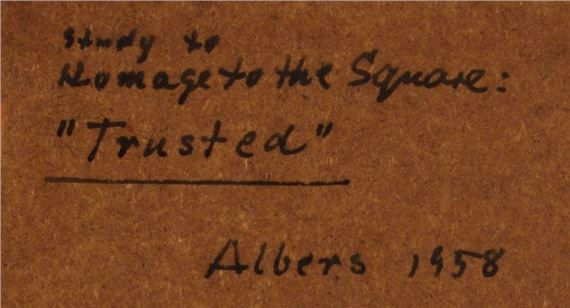 Study to
Homage to the Square:
"Trusted"
Albers 1958